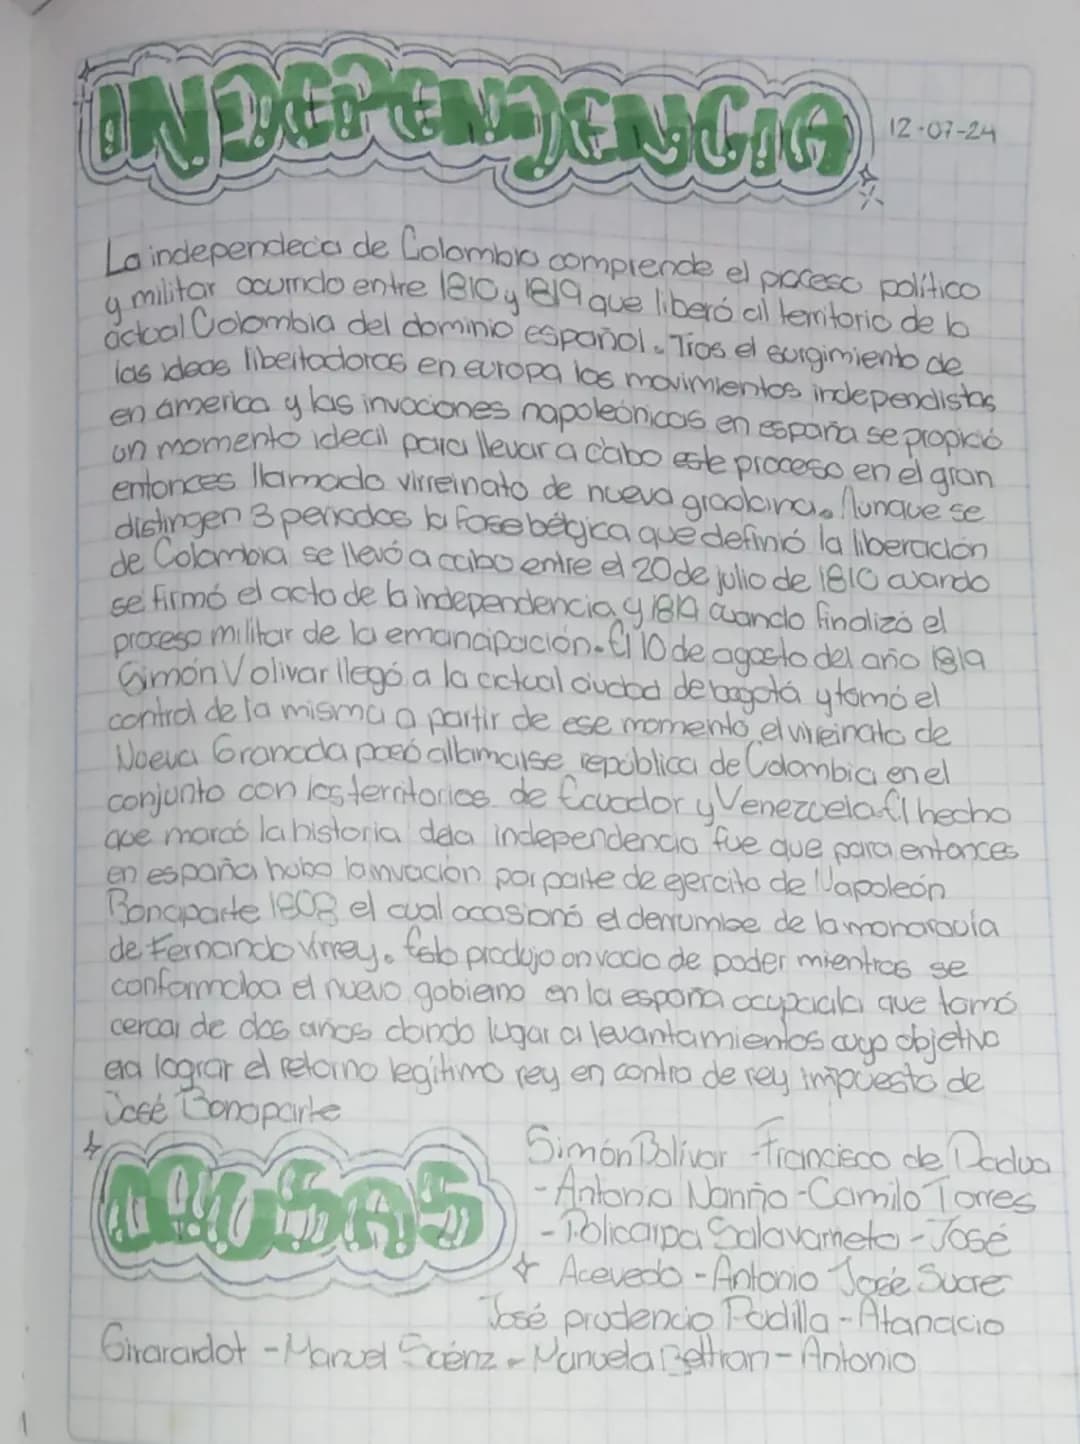 INDEPENDENCIA
12-07-24
La independecia de Colombia comprende el proceso político
y militar ocurrido entre 1810 y 1819 que liberó al territorio de la
actual Colombia del dominio español. Tras el surgimiento de
las ideas libertadoras en europa los movimientos independistas
en america y las invaciones napoleónicas en españa se propició
un momento ideal para llevar a cabo este proceso en el gran
entonces llamado virreinato de nueva granada. Aunque se
distingen 3 periodos la fase bélgica que definió la liberación
de Colombia se llevó a cabo entre el 20 de julio de 1810 cuando
se firmó el acta de la independencia y 1819 cuando finalizó el
proceso militar de la emancipación. El 10 de agosto del año 1819
Simón Volivar llegó a la actual ciudad de bogotá y tomó el
control de la misma a partir de ese momento el virreinato de
Nueva Granada pasó a llamarse república de Colombia en el
conjunto con los territorios de Ecuador y Venezuela El hecho
que marcó la historia dela independencia fue que para entonces
en españa hubo la invacion por parte de ejercito de Napoleón
Bonaparte 1808 el cual ocasionó el derrumbe de la monarquía
de Fernando virrey. Esto produjo un vacio de poder mientras se
conformaba el nuevo gobierno en la españa ocupada que tomó
cerca de dos años dando lugar a levantamientos cuyo objetivo
era lograr el retorno legítimo rey en contra de rey impuesto de
José Bonaparte
CAUSAS
Simón Bolívar - Francisco de Padua
- Antonio Nariño - Camilo Torres
- Policarpa Salavarrieta - José
Acevedo - Antonio José Sucre
José prudencio Padilla - Atanacio
Girarardot - Manuel Scénz - Manuela Beltran - Antonio